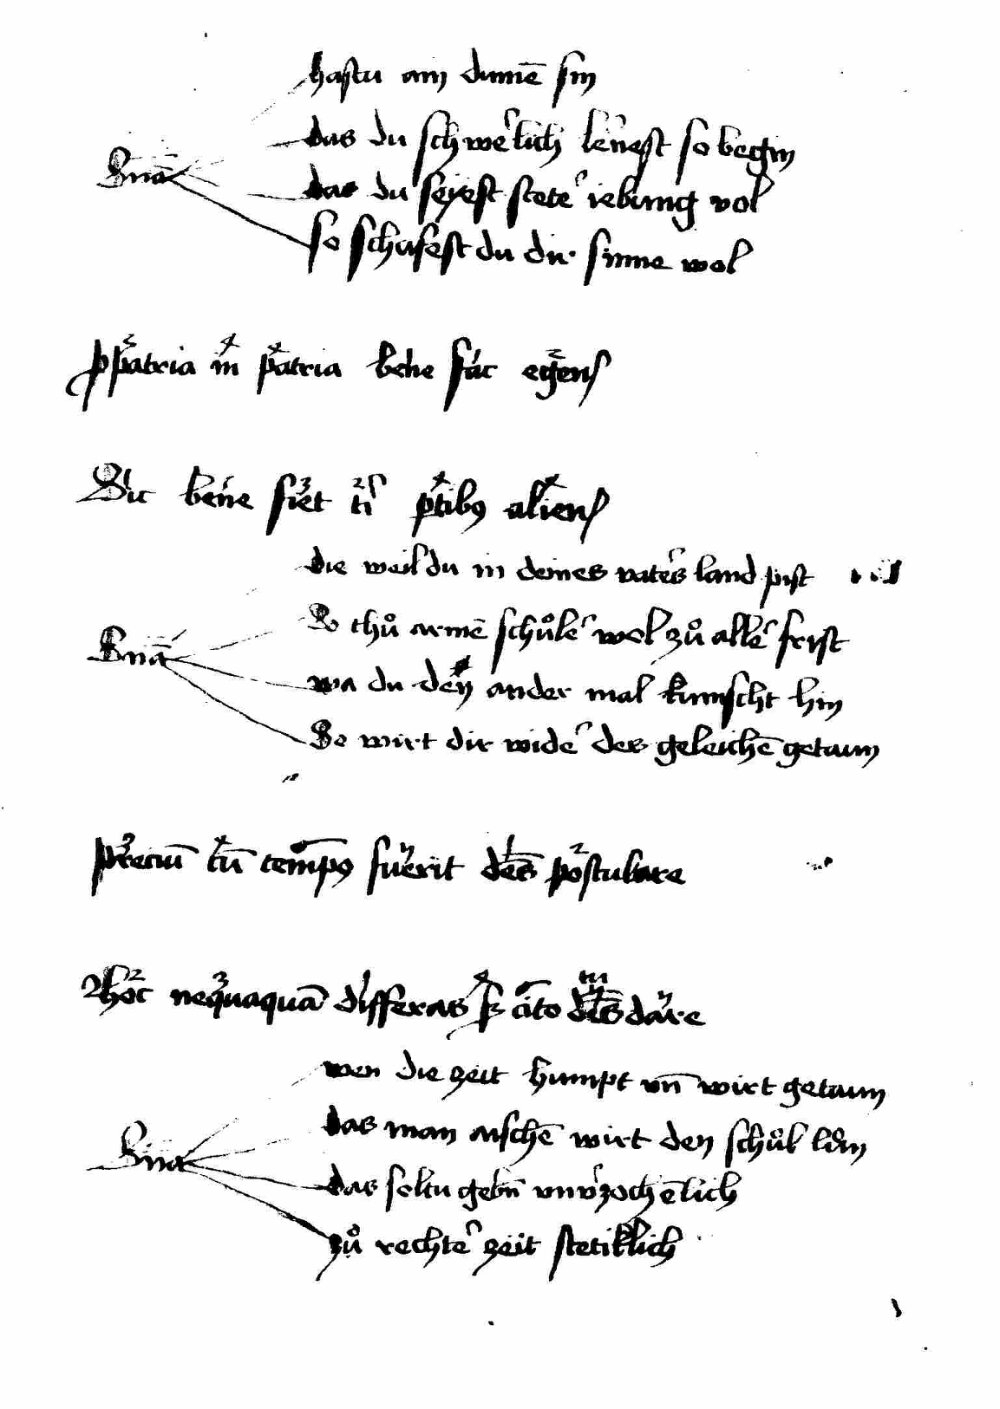 hastu ain dumē sin
das du schwerlich lernest so begin
Sniā
das du seyest steter iebung vol
so schufest du dir sinne wol
ppatria in patria bene fac egens
Sic bene fiet ti ptibꝰ aliens
die weil du in deines vaters land pist
So thuͦ armē schuͦler wol zuͦ aller frist
Sniā
wa du den ander mal kumscht hin
So wirt dir wider des geleichē getaun
preciū cū tempꝰ fuerit dens postulare
Hoc nequaquā differas sꝫ cito des dare
wen die zeit kumpt vn̄ wirt getaun
das man aischē wirt den schuͦl lon
Sniā
das soltu gebn̄ vnvͦzochēlich
zuͦ rechter zeit stetiklich